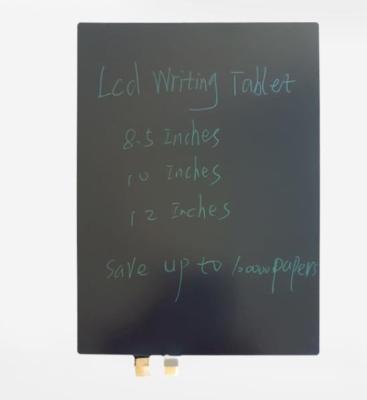 Lcd Writing Tablet
8.5 Inches
10 Inches
12 Inches
Save up to 100000 papers